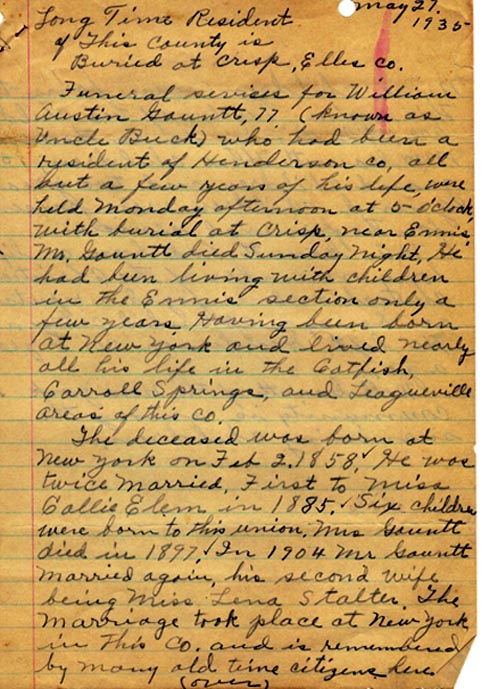 may 27.
1935
Long Time Resident
of This County is
Buried at Crisp, Elles co.
Funeral sevises for William
Austin Gauntt, 77 (known as
Uncle Buck) who had been a
resident of Henderson co, all
but a few years of his life, were
held Monday afternoon at 5 oclock,
with burial at Crisp, near Ennis,
Mr. Gauntt died Sunday Night, He
had been living with children
in the Ennis section only a
few years. Having been born
at New York and lived nearly
all his life in the Catfish,
Carroll Springs, and Leagueville
areas of this co.
The deceased was born at
New York on Feb 2. 1858. He was
twice Married, First to Miss
Callie Elem in 1885. Six children
were born to this union. Mrs Gauntt
died in 1897, In 1904 Mr Gauntt
married again, his second wife
being Miss Lena Stalter. The
Marriage took place at New York
in This Co. and is remembered
by many old time citizens here
(over)